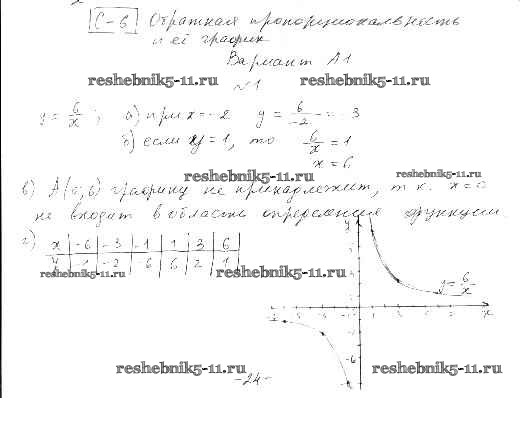 С-6 Обратная пропорциональность
и её график
Вариант А1
reshebnik5-11.ru reshebnik5-11.ru
№1
y = 6/x; а) при x = -2 y = 6/-2 = -3
б) если y = 1, то 6/x = 1
x = 6
reshebnik5-11.ru reshebnik5-11.ru
в) A(0;6) графику не принадлежит, т.к. x=0
не входит в область определения функции.
г) x -6 -3 -1 1 3 6
y -1 -2 -6 6 2 1
reshebnik5-11.ru reshebnik5-11.ru
y
y = 6/x
x
-6
reshebnik5-11.ru reshebnik5-11.ru
-24-